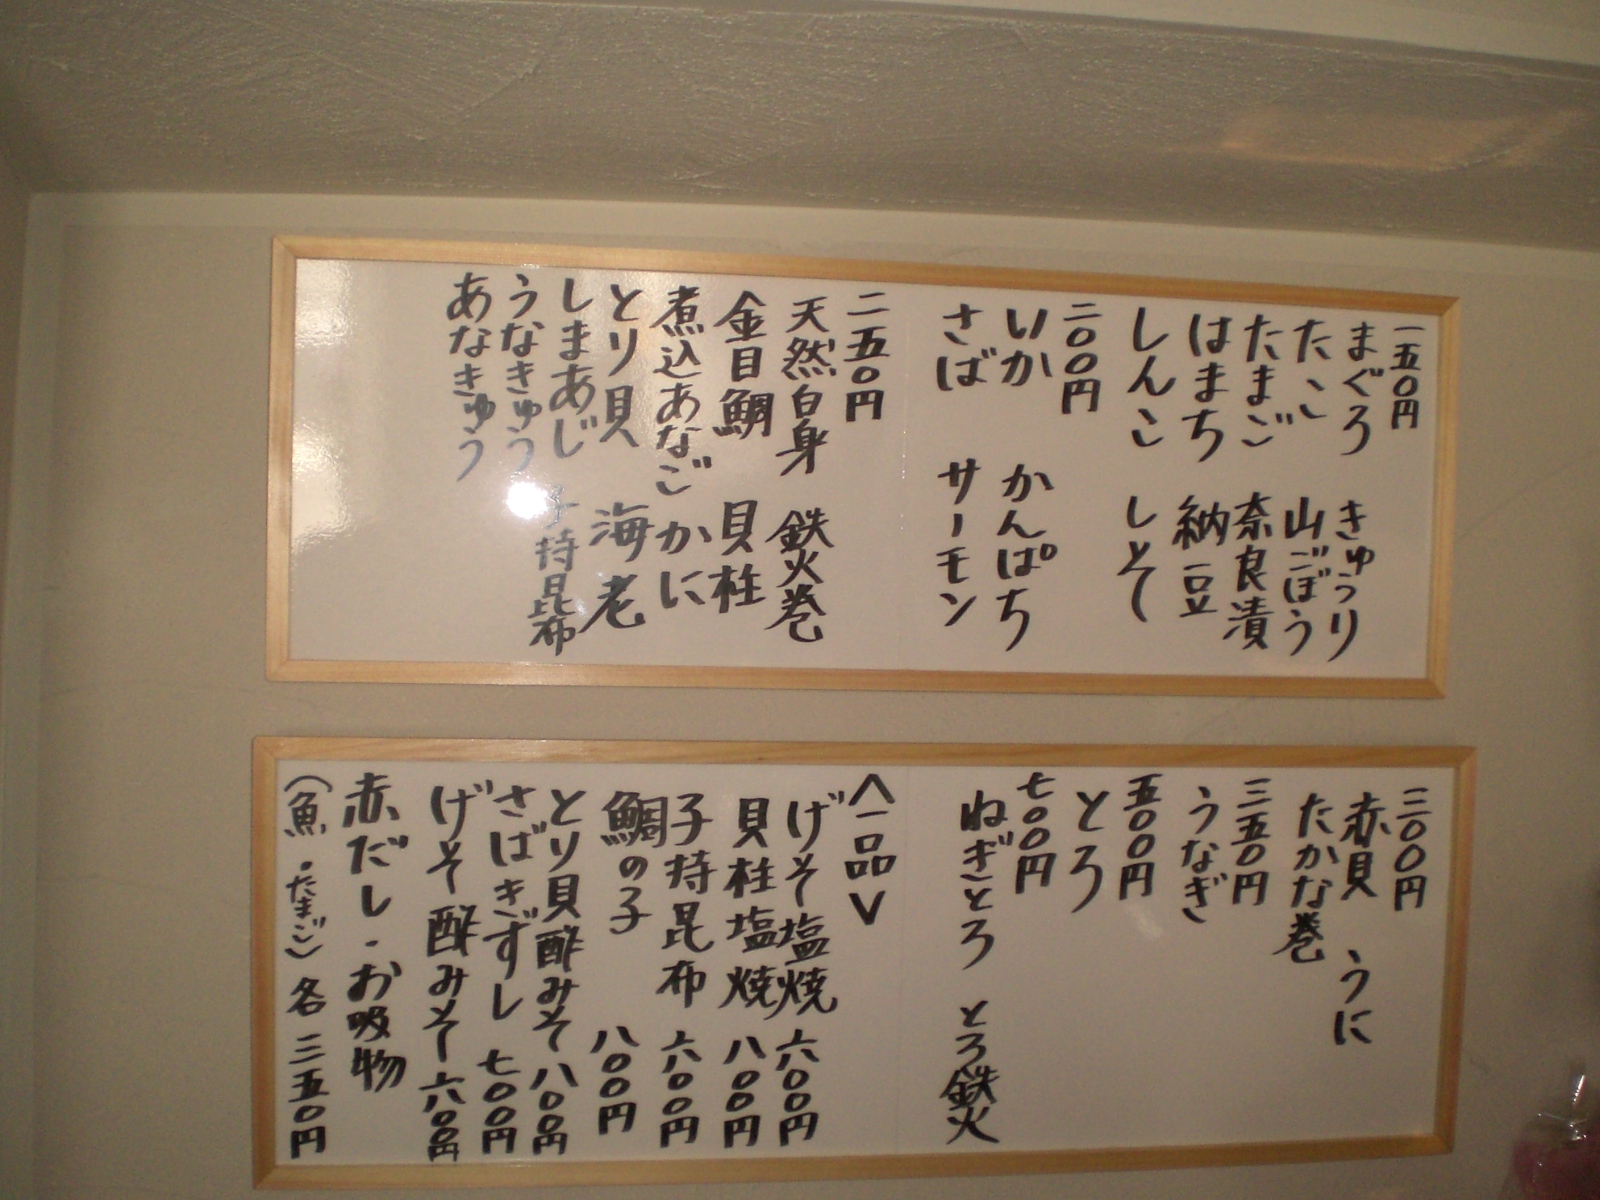 一五〇円
まぐろ　きゅうり
たこ　山ごぼう
たまご　奈良漬
はまち　納豆
しんこ　しそ
二〇〇円
いか　かんぱち
さば　サーモン
二五〇円
天然白身　鉄火巻
金目鯛　貝柱
煮込あなご　かに
とり貝　海老
しまあじ　子持昆布
うなきゅう
あなきゅう
三〇〇円
赤貝　うに
たかな巻
三五〇円
うなぎ
五〇〇円
とろ
七〇〇円
ねぎとろ　とろ鉄火
〈一品〉
げそ塩焼　六〇〇円
貝柱塩焼　八〇〇円
子持昆布　六〇〇円
鯛の子　八〇〇円
とり貝酢みそ　八〇〇円
さばきずし　七〇〇円
げそ酢みそ　六〇〇円
赤だし・お吸物
（魚・たまご）各三五〇円